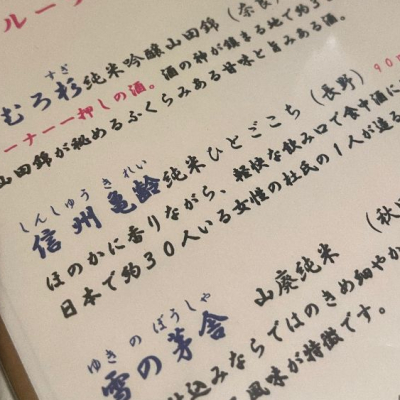 ルーナ
すぎ
むろ杉純米吟醸山田錦（奈良
ーナー一押しの酒。酒の神が鎮まる地で約3
山田錦が秘めるふくらみある甘味と旨みある酒。
しんしゅうきれい
信州亀齢純米ひとごこち（長野）90
ほのかに香りながら、軽快な飲み口で食中酒に
日本で約30人いる女性の杜氏の1人が造る
ゆきのぼうしゃ
雪の茅舎 山廃純米 （秋
仕込みならではのきめ細やか
風味が特徴です。